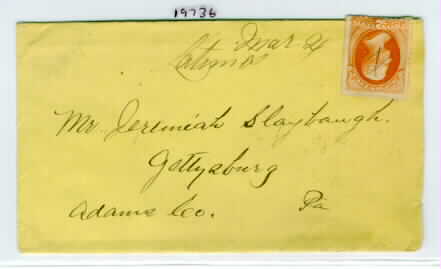 19736
Mar 4
Mr. Jeremiah Slaybaugh.
Gettysburg
Adams Co. Pa